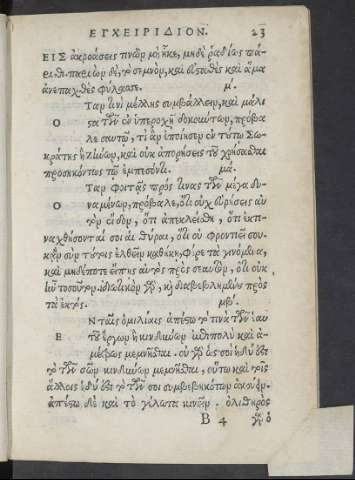 ΕΓΧΕΙΡΙΔΙΟΝ. 23
ΕΙΣ ἀκροάσεις τινῶν μὴ ἧκε, μηδὲ ῥᾳδίως πά-
ριθι. παριὼν δὲ, τὸ σεμνὸν, καὶ εὐσταθὲς καὶ ἅμα
ἀνεπαχθὲς φύλασσε. μ.
Ταν τινὶ μέλλῃς συμβάλλειν, καὶ μάλι
Ο στα τῶν ἐν ὑπεροχῇ δοκούντων, πρόβα
λε σαυτῷ, τί ἂν ἐποίησεν ἐν τούτῳ Σω-
κράτης ἢ Ζήνων, καὶ οὐκ ἀπορήσεις τοῦ χρήσασθαι
προσηκόντως τῷ ἐμπεσόντι. μα.
Ταν φοιτᾷς πρός τινας τῶν μέγα δυ-
Ο ναμένων, πρόβαλε, ὅτι οὐχ εὑρήσεις αὐ
τὸν ἔνδον, ὅτι ἀποκλεισθῇ, ὅτι ἐκτι-
ναχθήσονταί σοι αἱ θύραι, ὅτι οὐ φροντιεῖ σου.
κἂν σὺν τούτοις ἐλθεῖν καθήκῃ, φέρε τὰ γινόμενα,
καὶ μηδέποτε εἴπῃς αὐτὸς πρὸς σεαυτὸν, ὅτι οὐκ
ἦν τοσούτου. ἰδιωτικὸν γὰρ, καὶ διαβεβλημένον πρὸς
τὰ ἐκτός. μβ.
Ν ταῖς ὁμιλίαις ἀπέστω τό τινων ἑαυ
Ε τοῦ ἔργων ἢ κινδύνων ἐπιπολὺ καὶ ἀ-
μέτρως μεμνῆσθαι. οὐ γὰρ ὡς σοὶ ἡδύ ἐστι
τὸ τῶν σῶν κινδύνων μεμνῆσθαι, οὕτω καὶ τοῖς
ἄλλοις ἡδύ ἐστι τὸ τῶν σοι συμβεβηκότων ἀκούειν.
ἀπέστω δὲ καὶ τὸ γέλωτα κινεῖν. ὀλισθηρὸς
Β 4 γὰρ ὁ